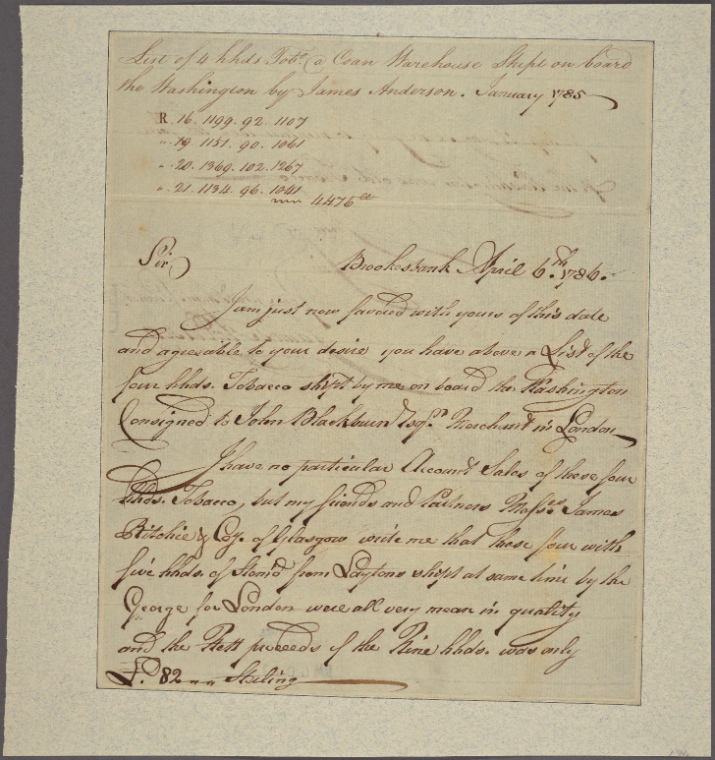 List of 4 hhds Tobo @ Coan Warehouse Shipt on board
the Washington by James Anderson. January 1785
R. 16. 1199. 92. 1107
" 19. 1151. 90. 1061
" 20. 1369. 102. 1267
" 21. 1134. 96. 1041
4476
Sir
Brooksbank April 6th. 1786.
I am just now favored with yours of this date
and agreeable to your desire you have above a List of the
four hhds. Tobacco shipt by me on board the Washington
Consigned to John Blackburn Esqr. Merchant in London
I have no particular Account Sales of these four
hhds. Tobacco, but my friends and Partners Messrs. James
Ritchie & Coy. of Glasgow write me that these four with
five hhds. of Stem'd from Laytons shipt at same time by the
George for London were all very mean in quality
and the Nett proceeds of the Nine hhds. was only
£. 82 " " Sterling